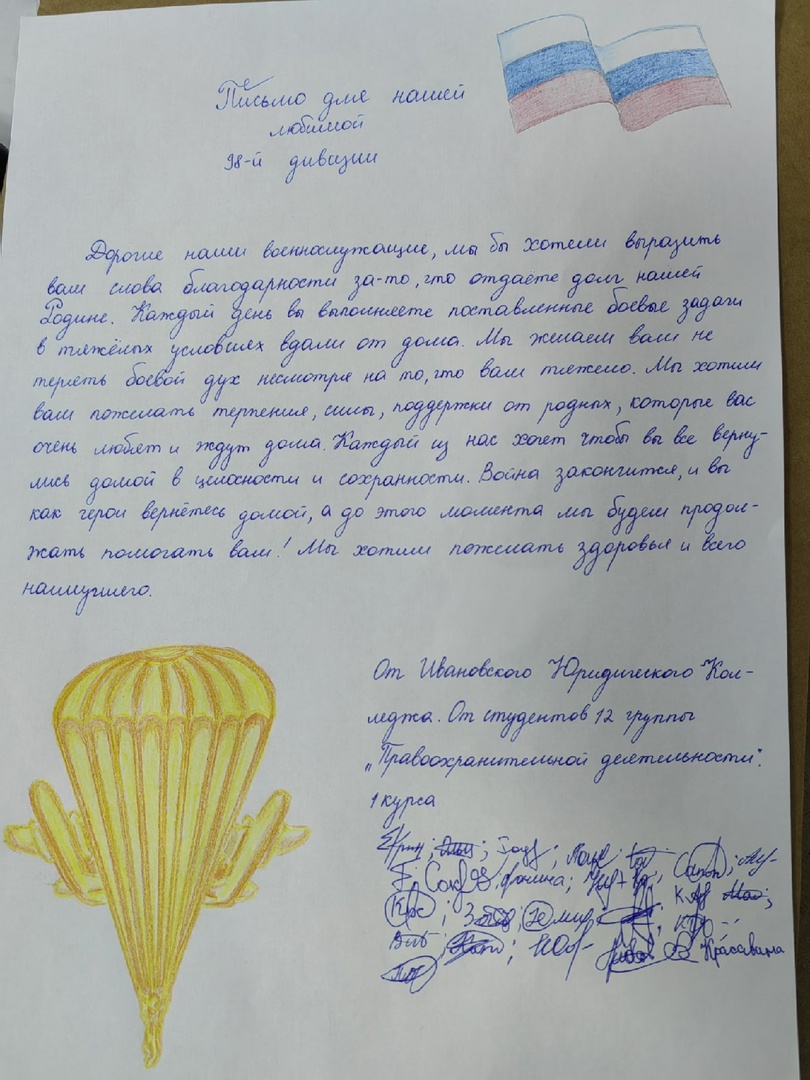 Письмо для нашей
любимой
98-й дивизии
Дорогие наши военнослужащие, мы бы хотели выразить
вам слова благодарности за-то, что отдаете долг нашей
Родине. Каждый день вы выполняете поставленные боевые задачи
в тяжёлых условиях вдали от дома. Мы желаем вам не
терять боевой дух несмотря на то, что вам тяжело. Мы хотим
вам пожелать терпения, силы, поддержки от родных, которые вас
очень любят и ждут дома. Каждый из нас хочет чтобы вы все верну-
лись домой в целосности и сохранности. Война закончится, и вы
как герои вернётесь домой, а до этого момента мы будем продол-
жать помогать вам! Мы хотим пожелать здоровья и всего
наилучшего.
От Ивановского Юридического Кол-
леджа. От студентов 12 группы
„Правоохранительной деятельности".
1 курса
Красавина